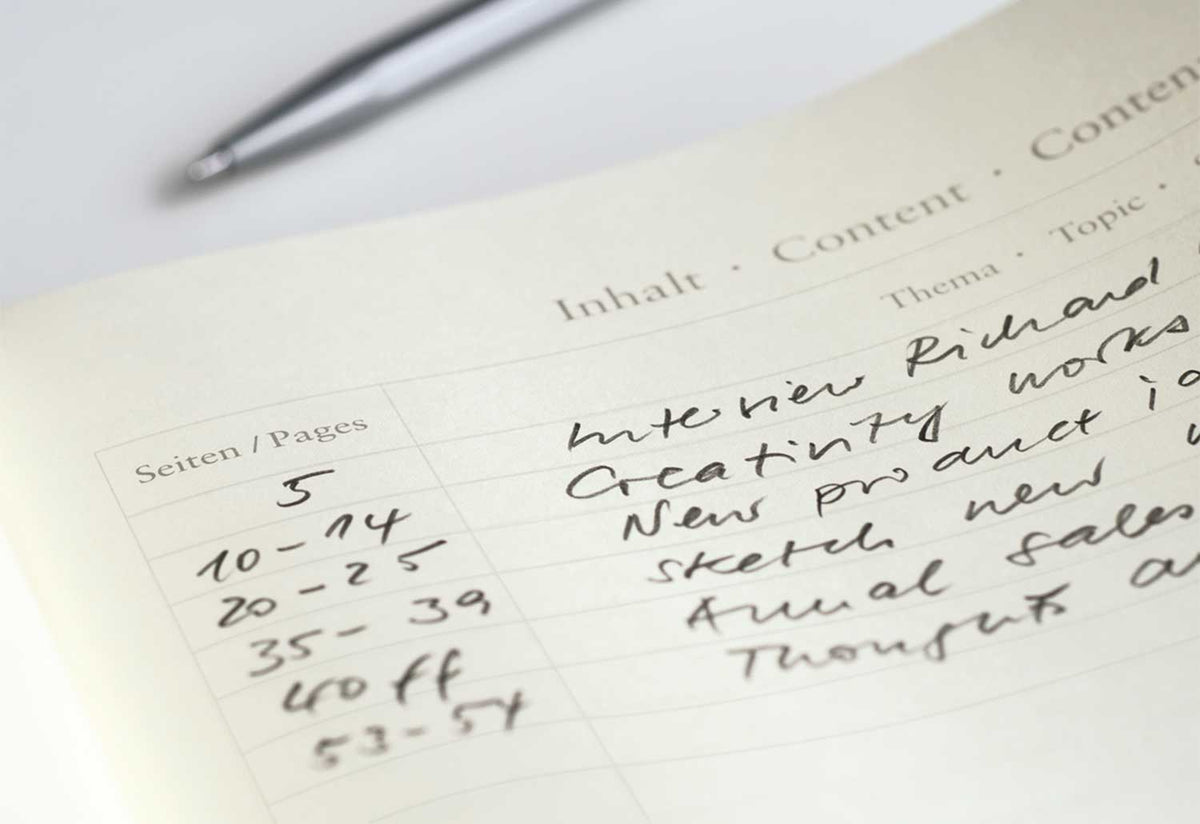 Inhalt · Content · Conten
Seiten / Pages Thema · Topic ·
5 Interview Richard
10-14 Creativity works
20-25 New product i
35-39 Sketch new
40 ff Annual sales
53-54 Thoughts